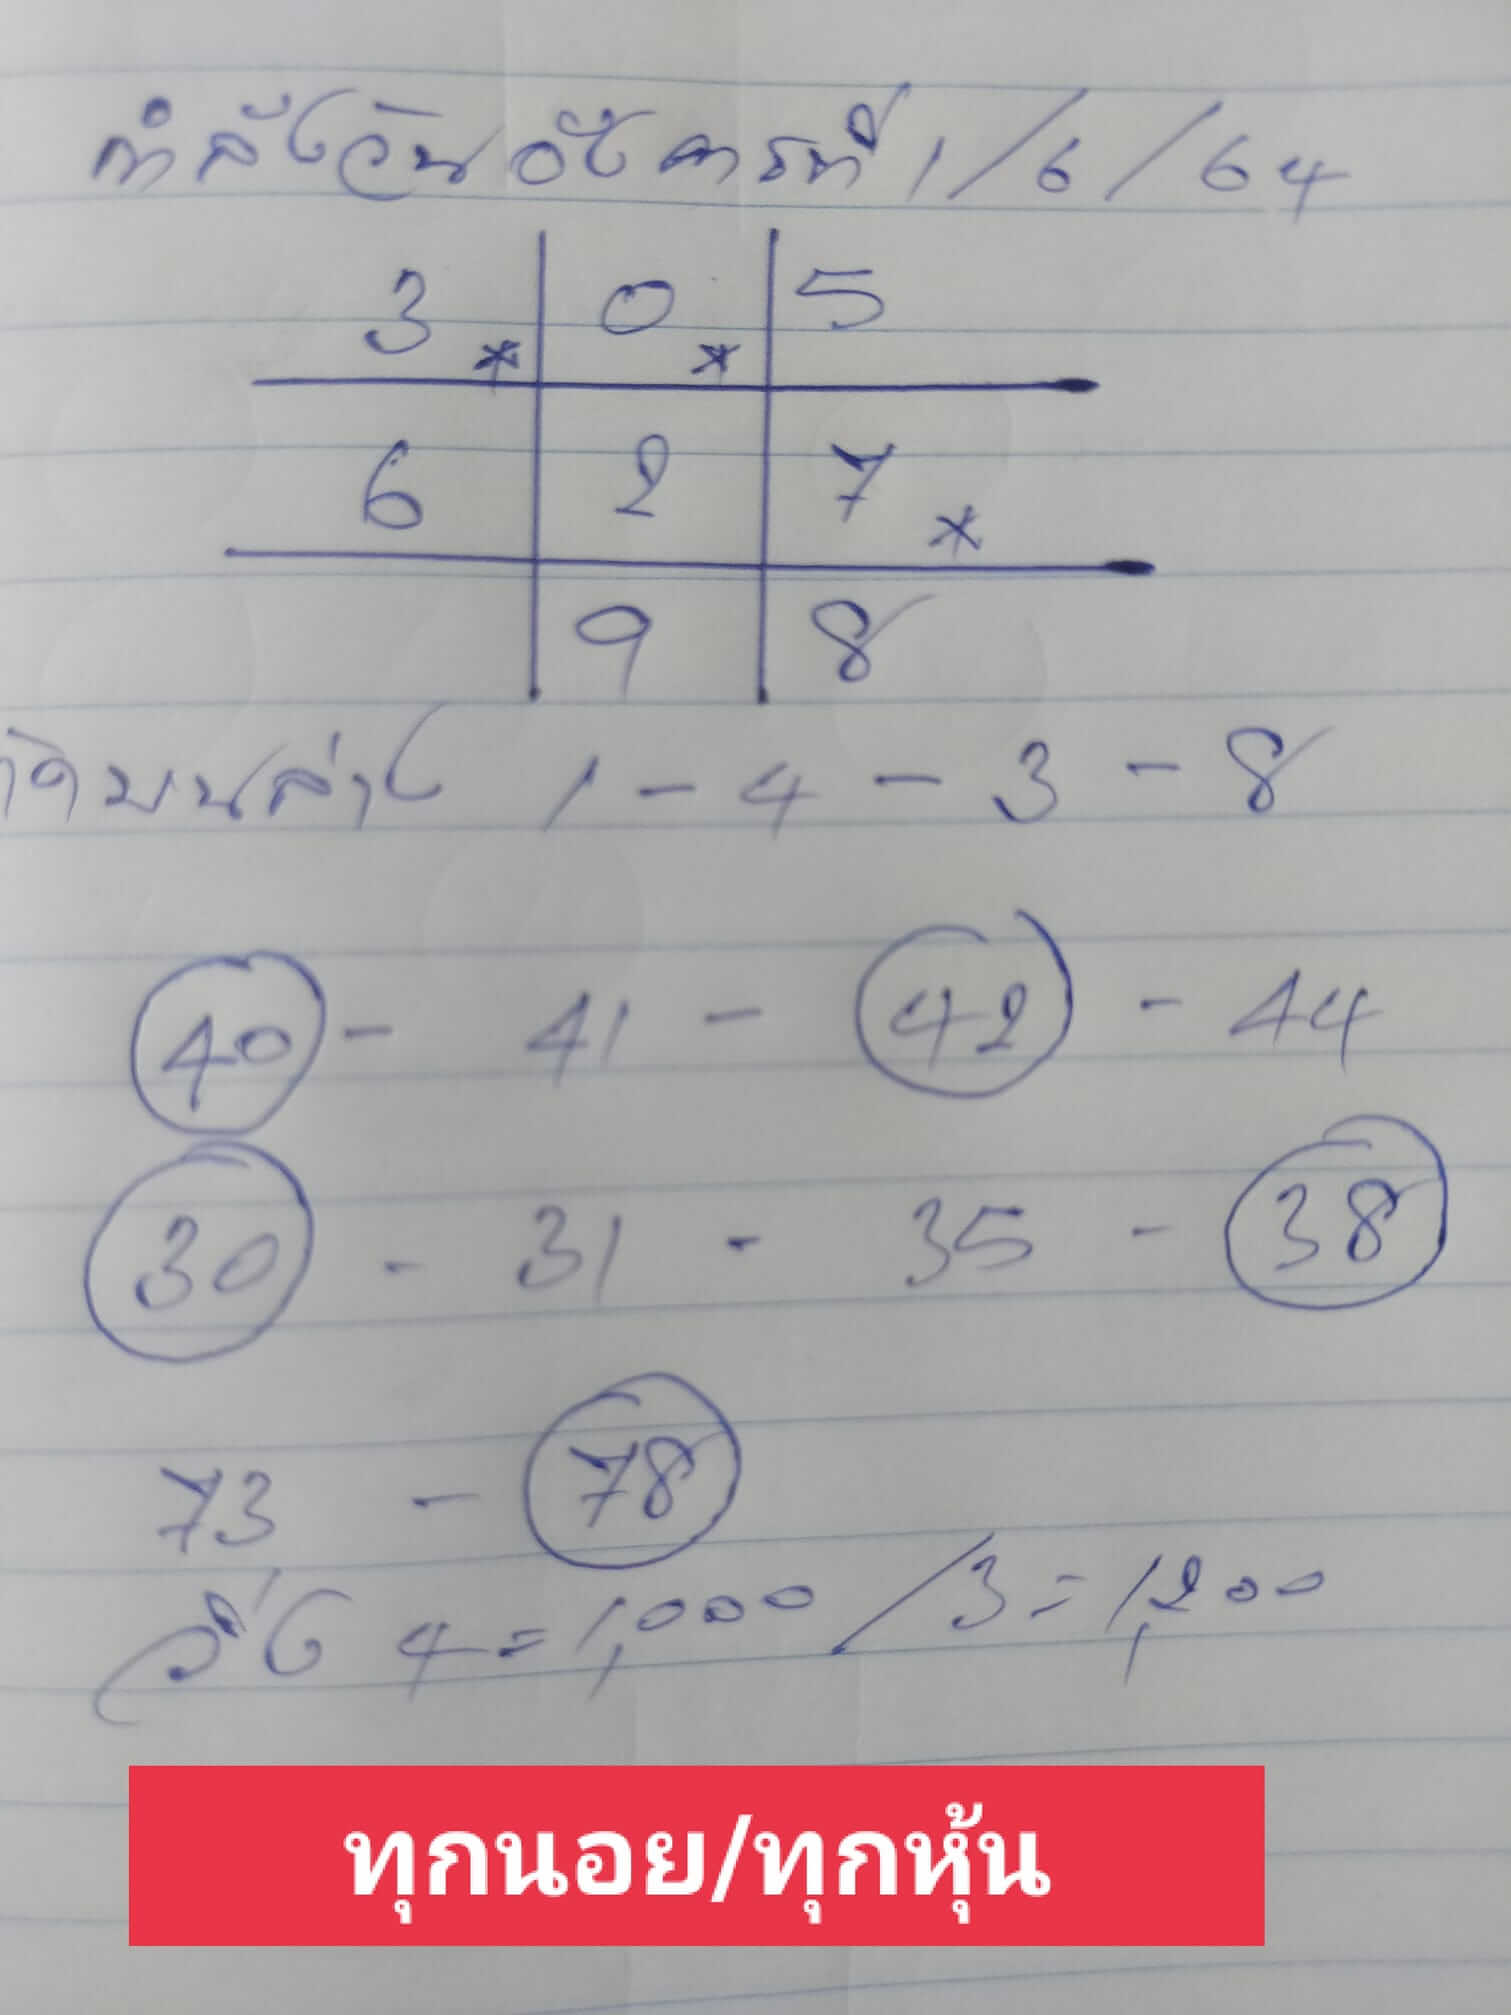 กำลังวันอังคารที่ 1/6/64
3 * 0 * 5
6 2 7 *
9 8
บนล่าง 1 - 4 - 3 - 8
40 - 41 - 42 - 44
30 - 31 - 35 - 38
73 - 78
วิ่ง 4 = 1,000 / 3 = 1,200
ทุกนอย/ทุกหุ้น